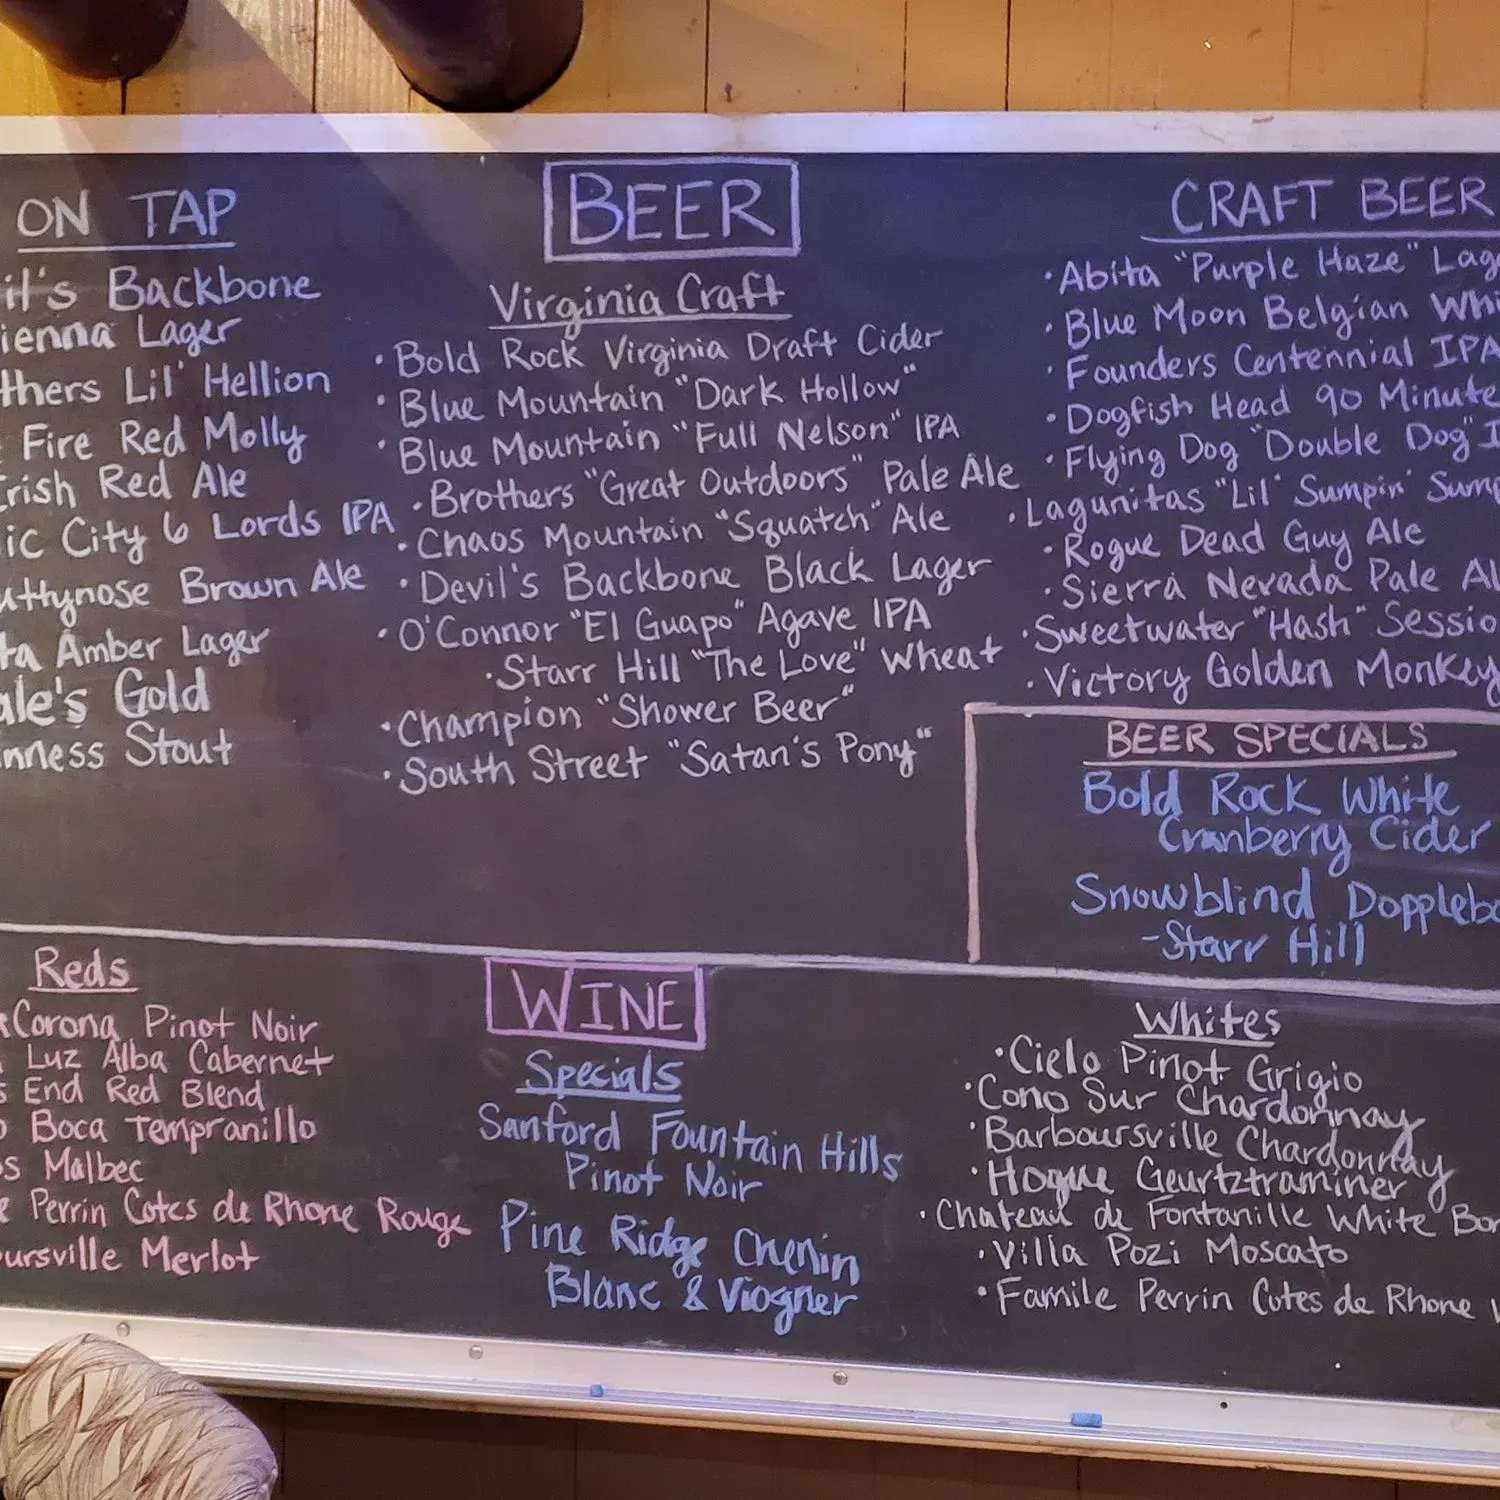 ON TAP
il's Backbone
ienna Lager
thers Lil' Hellion
Fire Red Molly
Irish Red Ale
ic City 6 Lords IPA
uttynose Brown Ale
ta Amber Lager
ale's Gold
nness Stout
BEER
Virginia Craft
• Bold Rock Virginia Draft Cider
• Blue Mountain "Dark Hollow"
• Blue Mountain "Full Nelson" IPA
• Brothers "Great Outdoors" Pale Ale
• Chaos Mountain "Squatch" Ale
• Devil's Backbone Black Lager
• O'Connor "El Guapo" Agave IPA
• Starr Hill "The Love" Wheat
• Champion "Shower Beer"
• South Street "Satan's Pony"
CRAFT BEER
• Abita "Purple Haze" Lag
• Blue Moon Belgian Whi
• Founders Centennial IPA
• Dogfish Head 90 Minute
• Flying Dog "Double Dog" I
• Lagunitas "Lil' Sumpin' Sum
• Rogue Dead Guy Ale
• Sierra Nevada Pale Al
• Sweetwater "Hash" Sessio
• Victory Golden Monkey
BEER SPECIALS
Bold Rock White
Cranberry Cider
Snowblind Dopplebo
-Starr Hill
Reds
Corona Pinot Noir
Luz Alba Cabernet
s End Red Blend
o Boca Tempranillo
os Malbec
e Perrin Cotes de Rhone Rouge
oursville Merlot
WINE
Specials
Sanford Fountain Hills
Pinot Noir
Pine Ridge Chenin
Blanc & Viogner
Whites
• Cielo Pinot Grigio
• Cono Sur Chardonnay
• Barboursville Chardonnay
• Hogue Geurtztraminer
• Chateau de Fontanille White Bor
• Villa Pozi Moscato
• Famile Perrin Cotes de Rhone